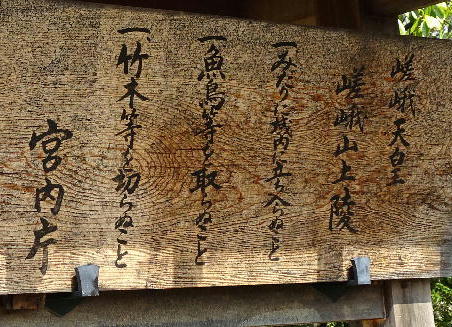 嵯峨天皇
嵯峨山上陵
一みだりに域内に立ち入らぬこと
一魚鳥等を取らぬこと
一竹木等を切らぬこと
宮内庁